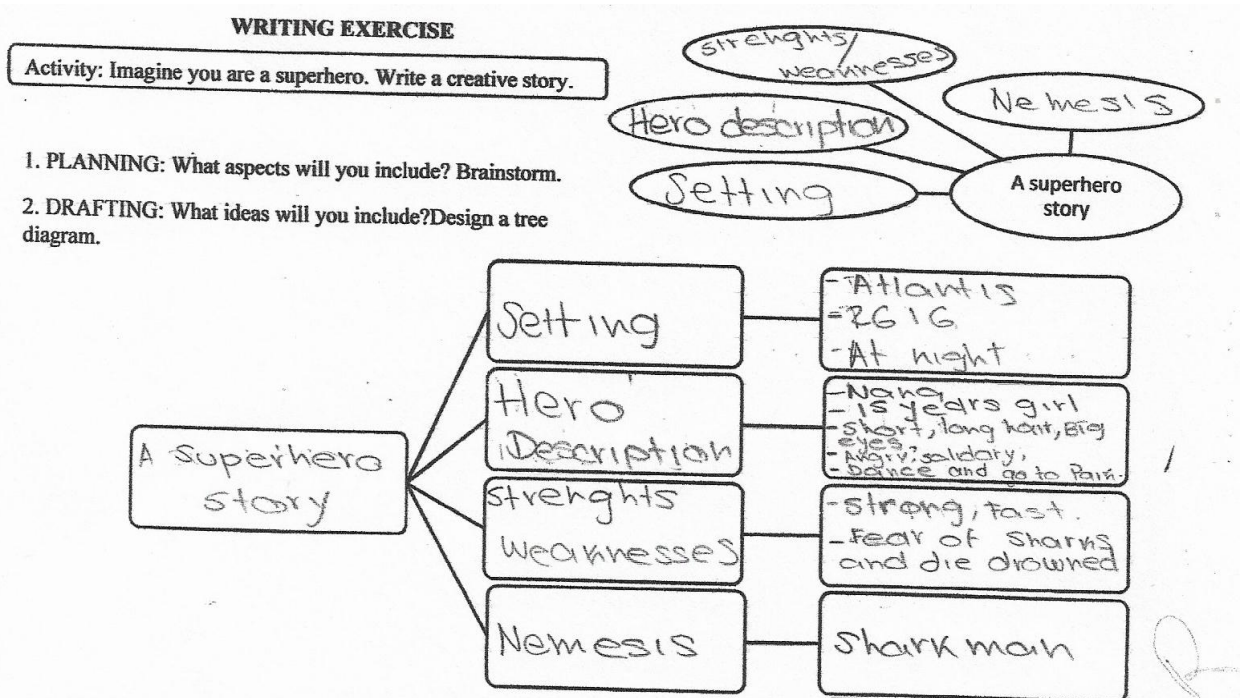 WRITING EXERCISE
Activity: Imagine you are a superhero. Write a creative story.
1. PLANNING: What aspects will you include? Brainstorm.
2. DRAFTING: What ideas will you include?Design a tree
diagram.
strenghts/
weaknesses
Nemesis
Hero description
Setting
A superhero
story
A superhero
story
Setting
- Atlantis
- 2616
- At night
Hero
Description
- Nana
- 15 years girl
- short, long hair, Big
eyes,
- Angry, solidary,
- Dance and go to Park.
strenghts
weaknesses
- strong, Fast.
- Fear of sharks
and die drowned
Nemesis
Sharkman